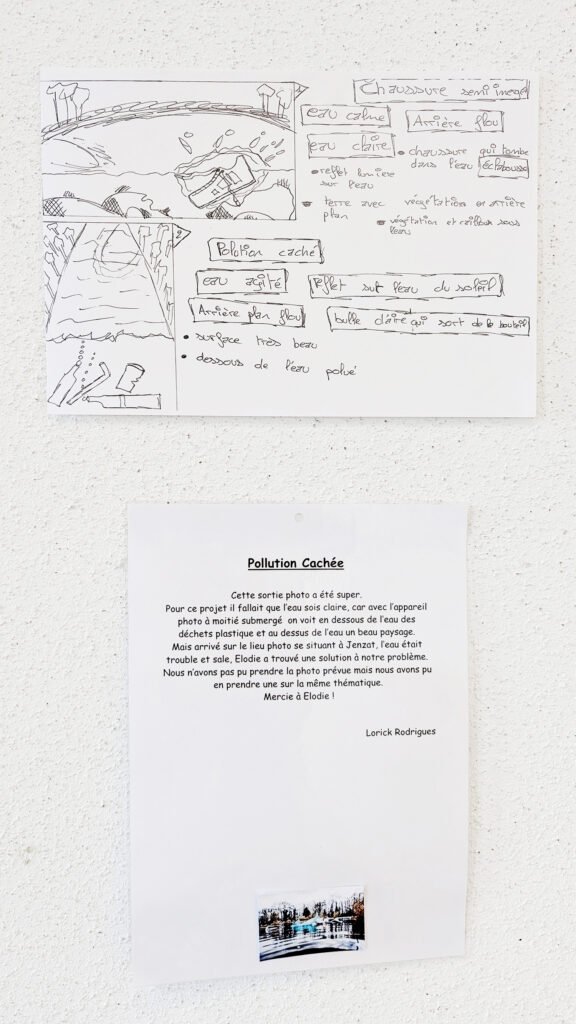 1
Chaussure semi imergé
eau calme
Arrière flou
eau claire
• chaussure qui tombe
dans l'eau éclabousse
• reflet lumière
sur l'eau
• terre avec végétation en arrière
plan
• végétation et cailloux sous
l'eau
2
Polution caché
eau agité
reflet sur l'eau du soleil
Arrière plan flou
bulle d'aire qui sort de la bouteil
• surface très beau
• dessous de l'eau polué
Pollution Cachée
Cette sortie photo a été super.
Pour ce projet il fallait que l'eau sois claire, car avec l'appareil
photo à moitié submergé on voit en dessous de l'eau des
déchets plastique et au dessus de l'eau un beau paysage.
Mais arrivé sur le lieu photo se situant à Jenzat, l'eau était
trouble et sale, Elodie a trouvé une solution à notre problème.
Nous n'avons pas pu prendre la photo prévue mais nous avons pu
en prendre une sur la même thématique.
Mercie à Elodie !
Lorick Rodrigues